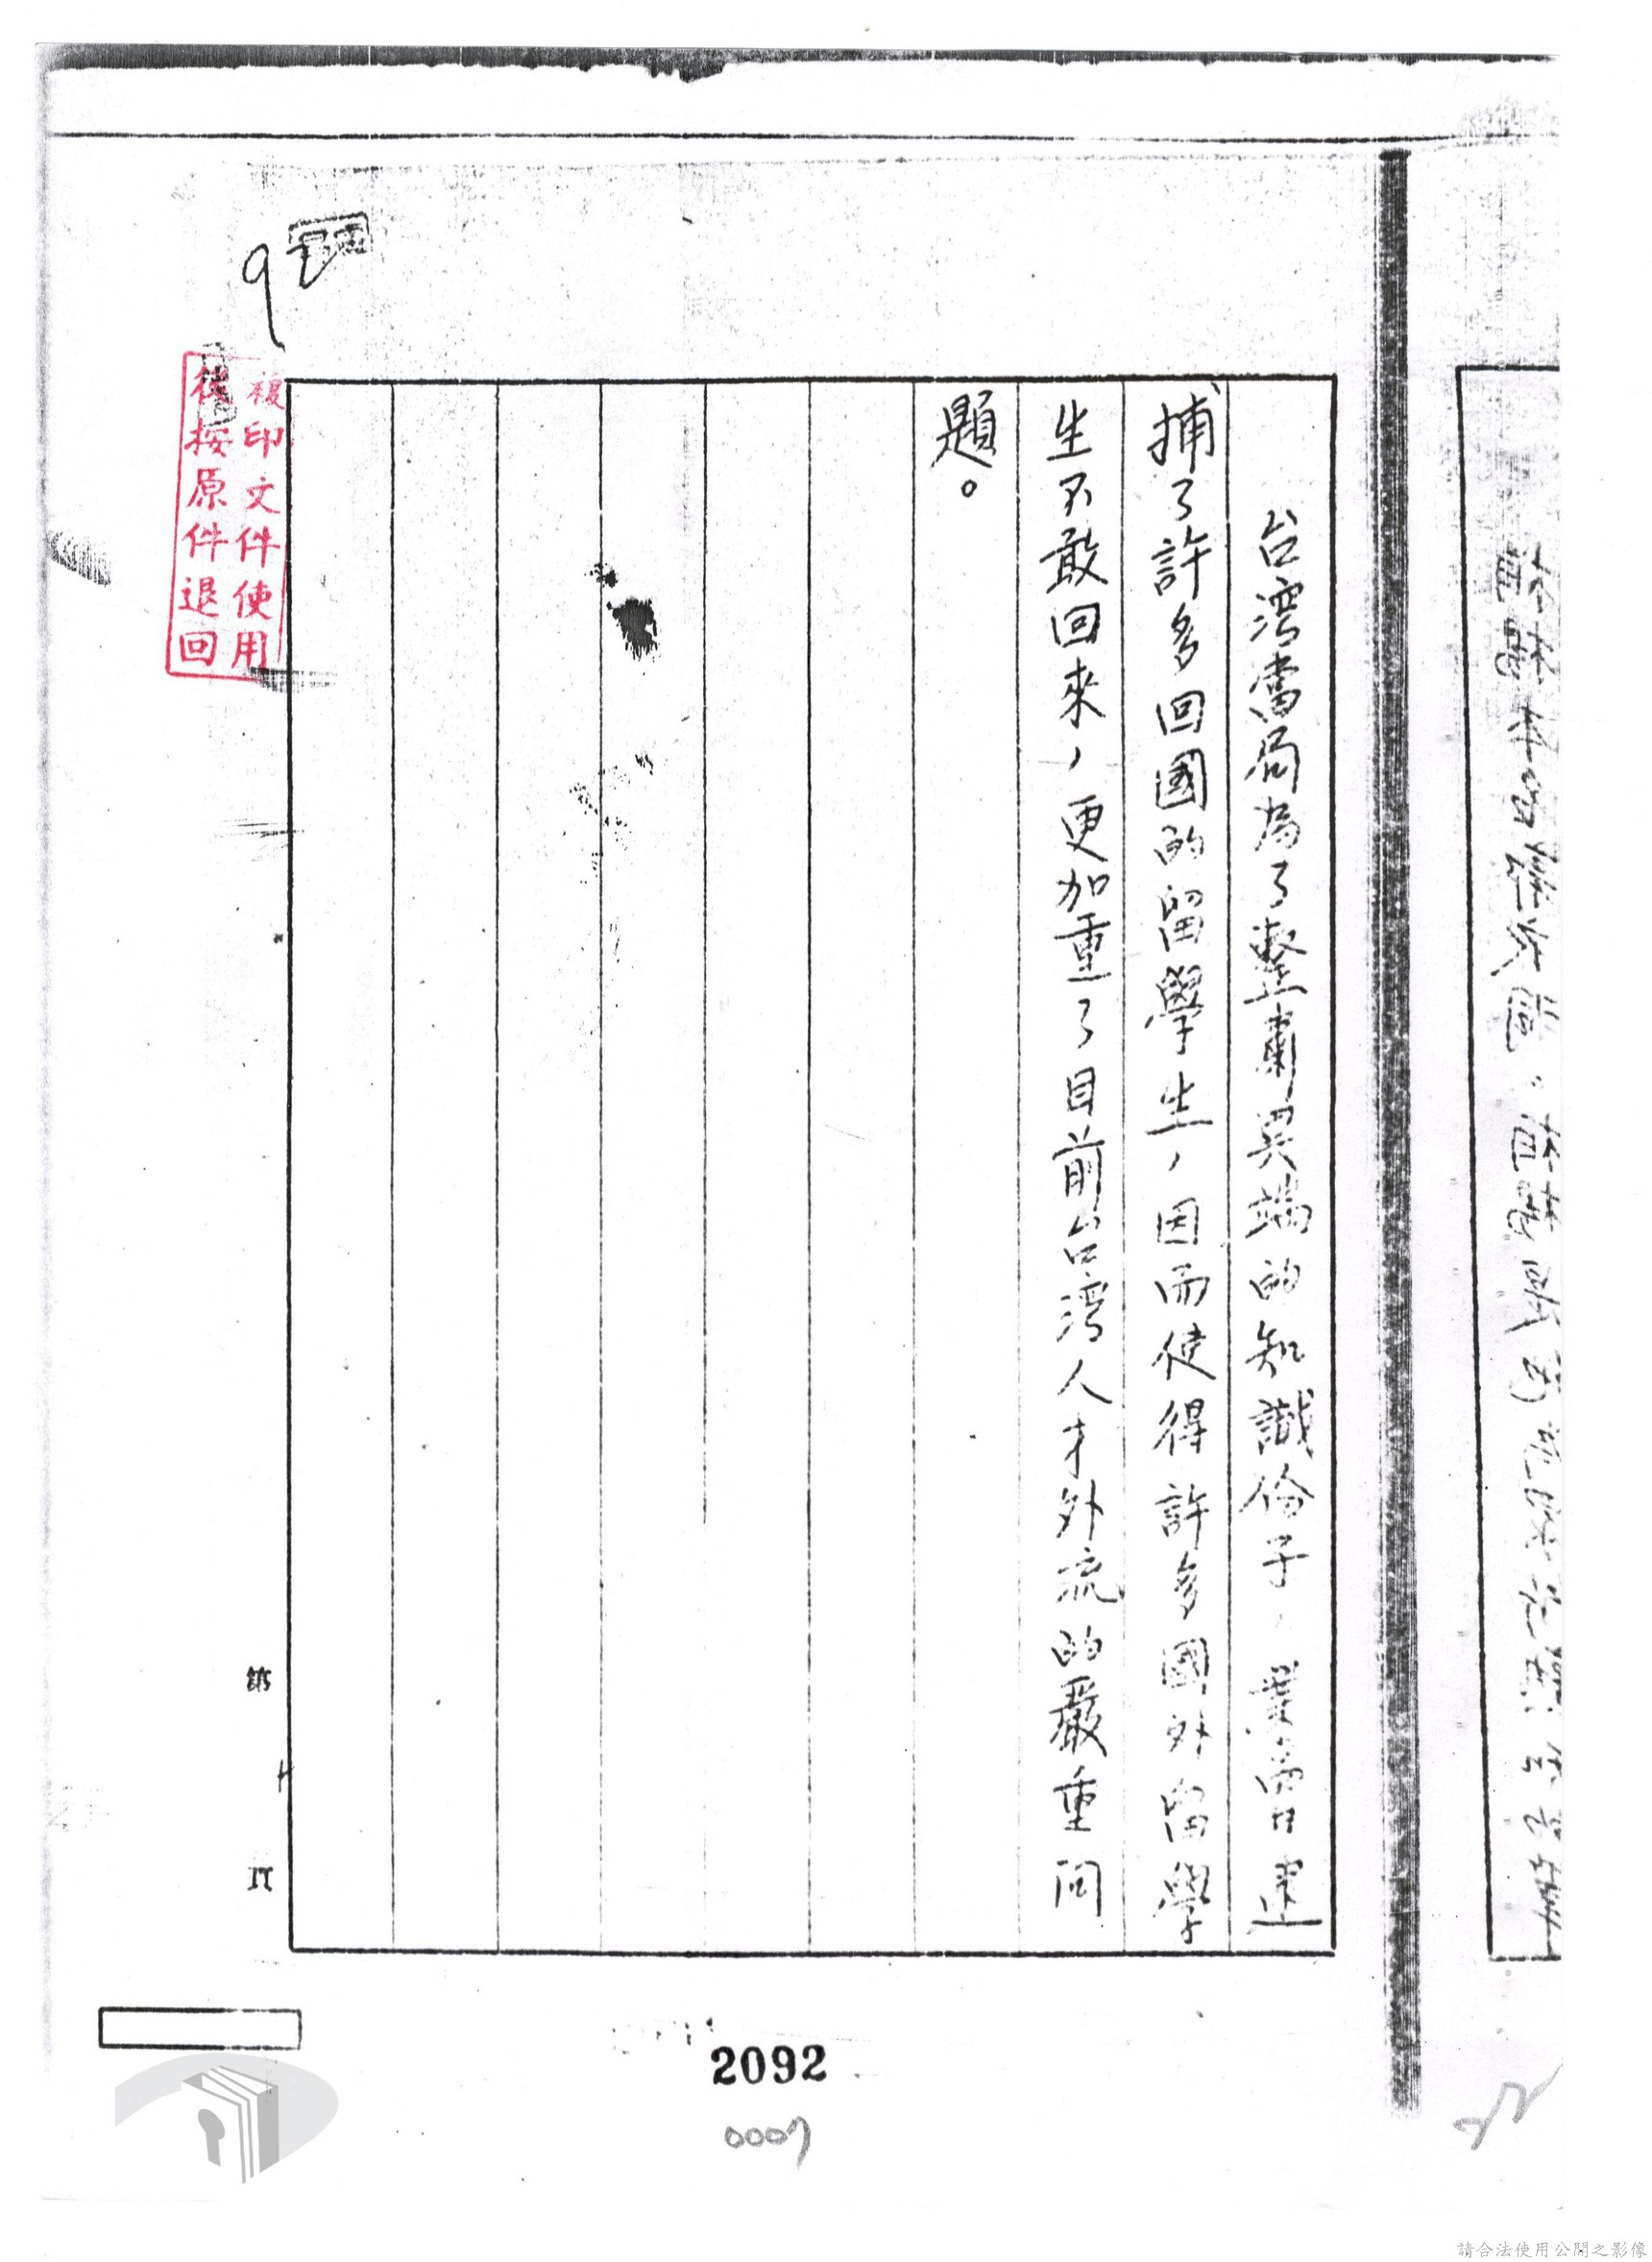 台湾當局為了整肅異端的知識份子,業曾逮
捕了許多回國的留學生,因而使得許多國外留學
生不敢回來,更加重了目前台湾人才外流的嚴重問
題。
複印文件使用
後按原件退回
第
頁
2092
0007
請合法使用公開之影像